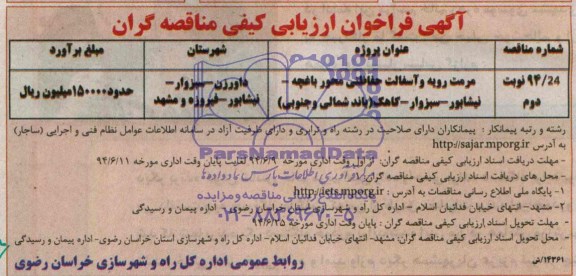 آگهی فراخوان ارزیابی کیفی مناقصه گران
شماره مناقصه عنوان پروژه شهرستان مبلغ برآورد
۹۴/24 نوبت مرمت رویه وآسفالت حفاظتی محور باغچه - داورزن-سبزوار- حدود۱۵۰۰۰۰میلیون ریال
دوم نیشابور-سبزوار-کاهک(باند شمالی وجنوبی) نیشابور-فیروزه و مشهد
رشته و رتبه پیمانکار : پیمانکاران دارای صلاحیت در رشته راه و ترابری و دارای ظرفیت آزاد در سامانه اطلاعات عوامل نظام فنی و اجرایی (ساجار)
به آدرس http://sajar.mporg.ir
- مهلت دریافت اسناد ارزیابی کیفی مناقصه گران: از اول وقت اداری مورخه ۹۴/۶/۹ لغایت پایان وقت اداری مورخه ۹۴/۶/۱۱
- محل های دریافت اسناد ارزیابی کیفی مناقصه گران:
۱- پایگاه ملی اطلاع رسانی مناقصات به آدرس : http://iets.mporg.ir
۲- مشهد- انتهای خیابان فدائیان اسلام - اداره کل راه و شهرسازی استان خراسان رضوی- اداره پیمان و رسیدگی
- مهلت تحویل اسناد ارزیابی کیفی مناقصه گران : پایان وقت اداری مورخه ۹۴/۶/۲۵
- محل تحویل اسناد ارزیابی کیفی مناقصه گران: مشهد- انتهای خیابان فدائیان اسلام- اداره کل راه و شهرسازی استان خراسان رضوی- اداره پیمان و رسیدگی
۱۴۳۶۱/ص روابط عمومی اداره کل راه و شهرسازی خراسان رضوی
ParsNamadData
پایگاه اطلاع رسانی مناقصه ومزایده
۰۲۱-۸۸۳۴۹۶۷۰-۵